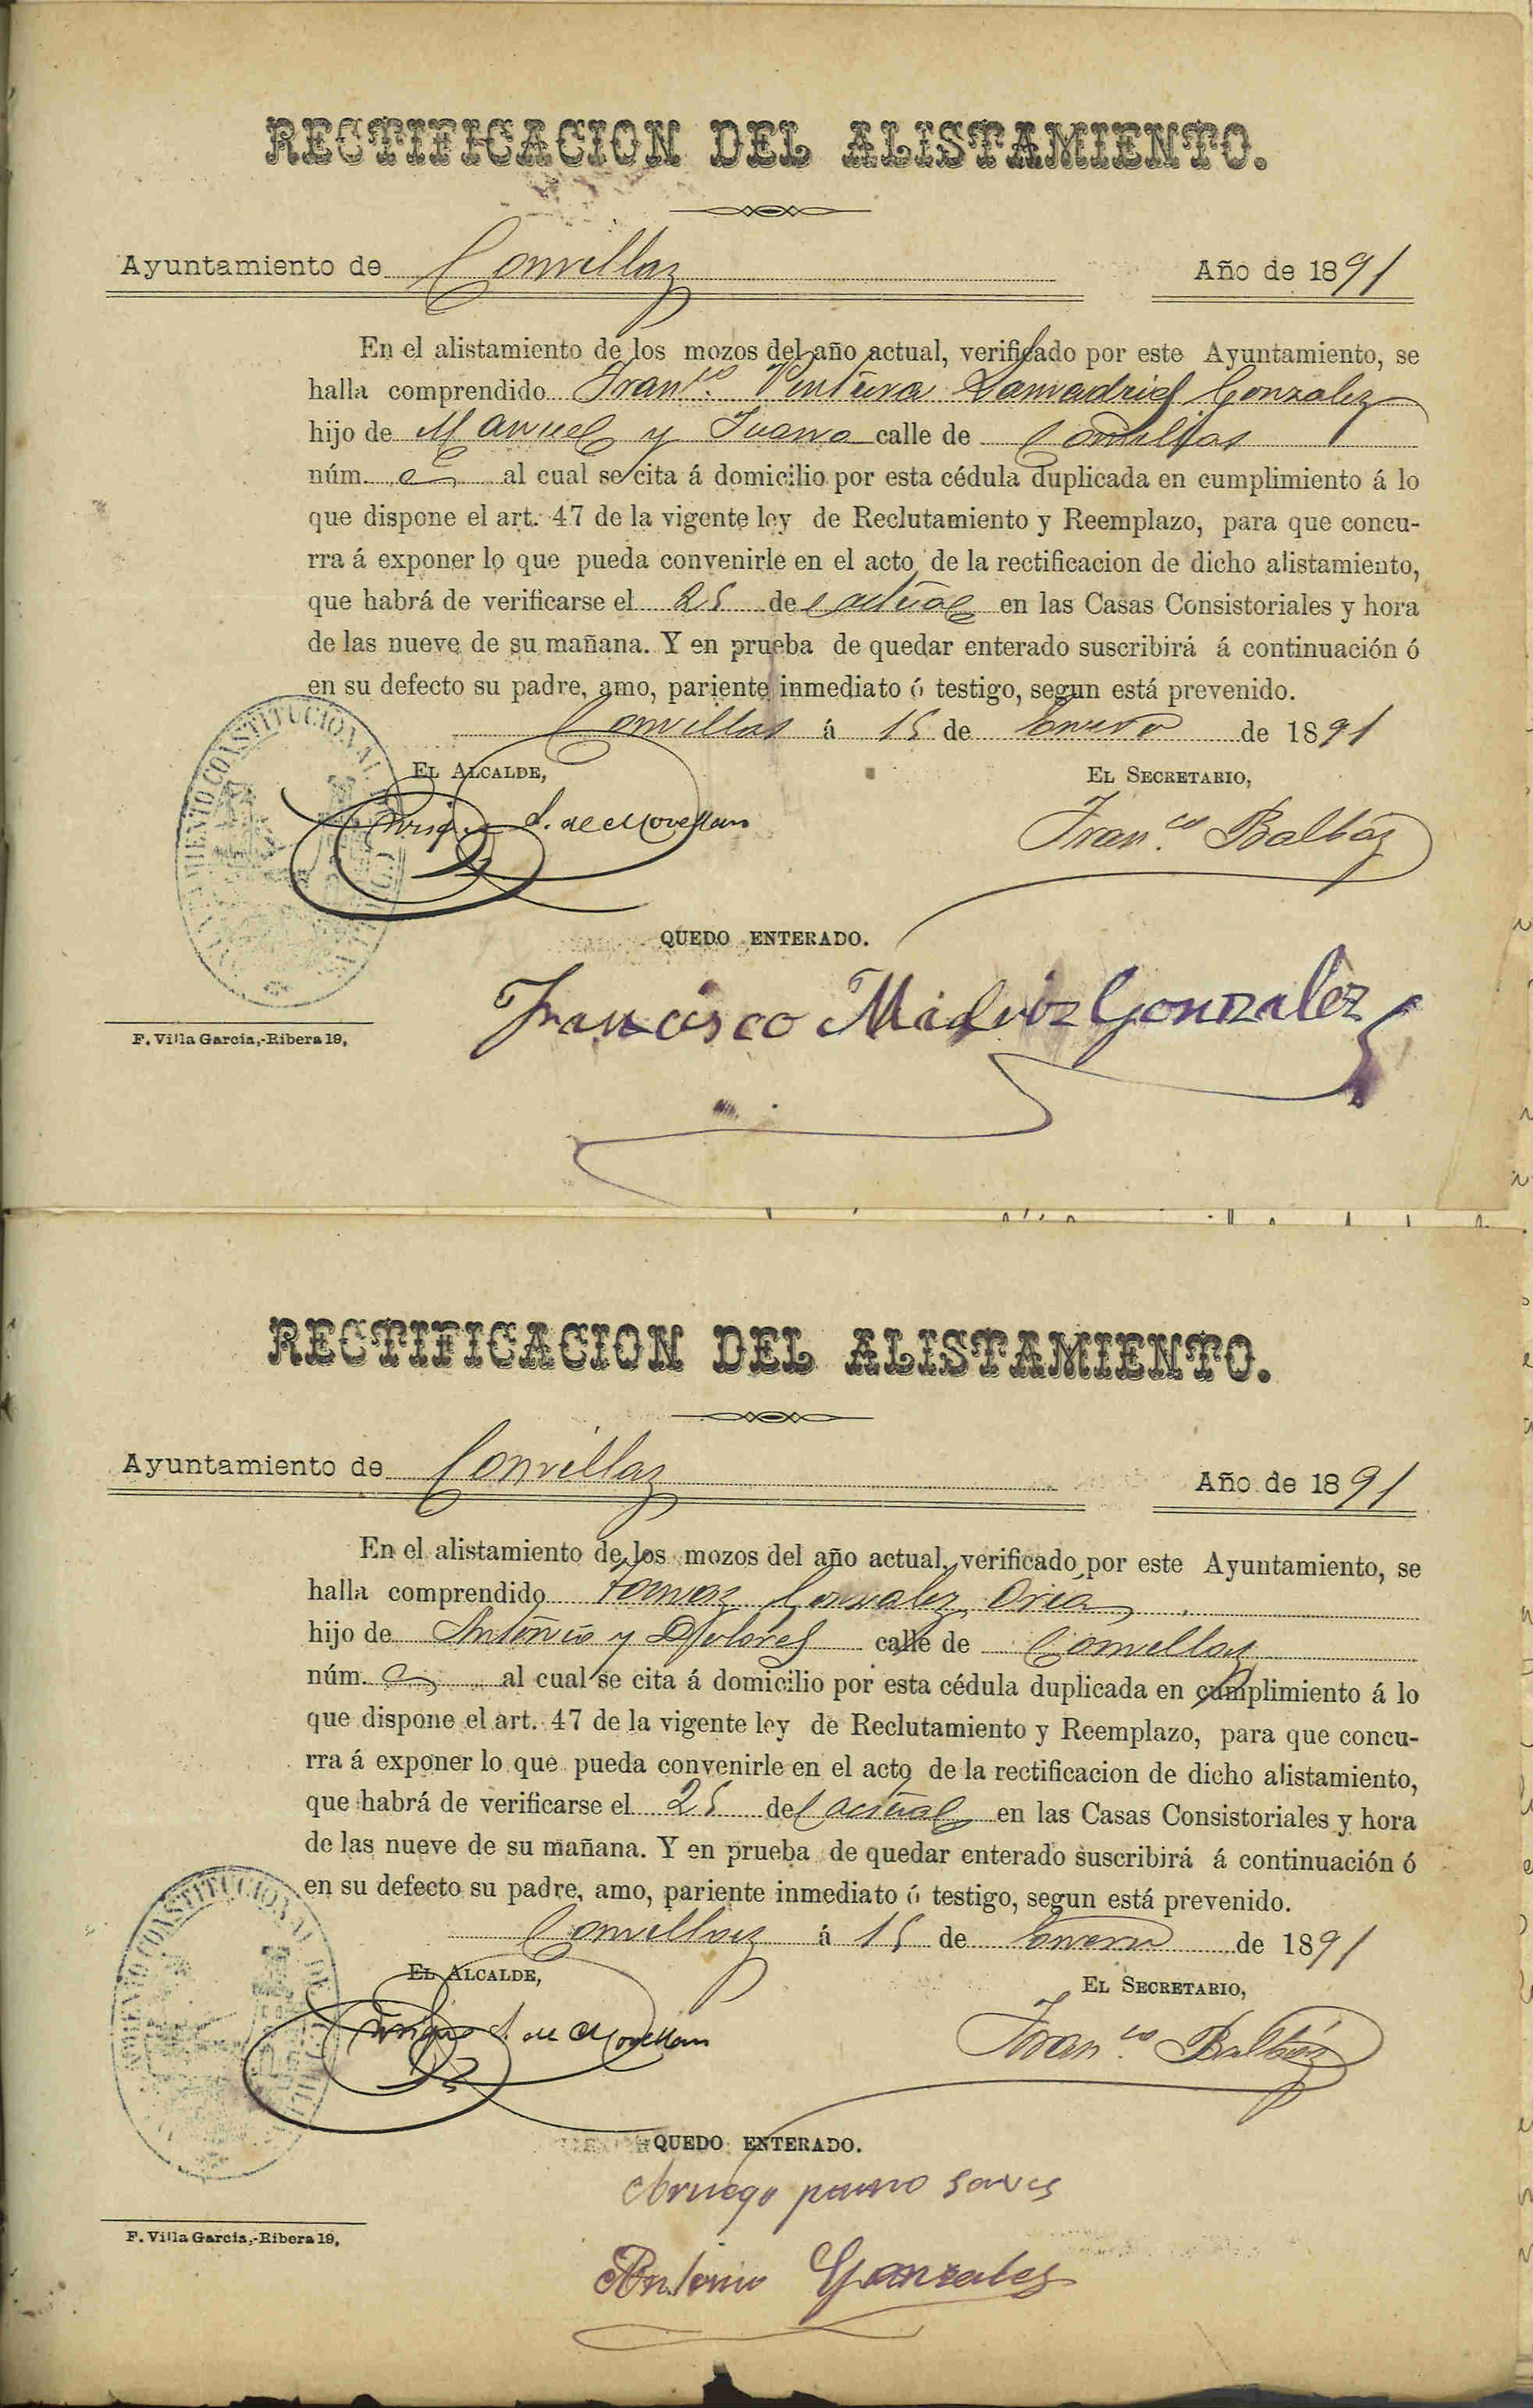 RECTIFICACION DEL ALISTAMIENTO.
Ayuntamiento de Comillas Año de 1891
En el alistamiento de los mozos del año actual, verificado por este Ayuntamiento, se
halla comprendido Franco. Ventura Lamadrid Gonzalez
hijo de Manuel y Juana calle de Comillas
núm. al cual se cita á domicilio por esta cédula duplicada en cumplimiento á lo
que dispone el art. 47 de la vigente ley de Reclutamiento y Reemplazo, para que concu-
rra á exponer lo que pueda convenirle en el acto de la rectificacion de dicho alistamiento,
que habrá de verificarse el 25 del actual en las Casas Consistoriales y hora
de las nueve de su mañana. Y en prueba de quedar enterado suscribirá á continuación ó
en su defecto su padre, amo, pariente inmediato ó testigo, segun está prevenido.
Comillas á 15 de Enero de 1891
EL ALCALDE, EL SECRETARIO,
S. de Movellan Franco. Balbás
AYUNTAMIENTO CONSTITUCIONAL DE COMILLAS
QUEDO ENTERADO.
Francisco Madriz Gonzalez
F. Villa García,-Ribera 19,
RECTIFICACION DEL ALISTAMIENTO.
Ayuntamiento de Comillas Año de 1891
En el alistamiento de los mozos del año actual, verificado por este Ayuntamiento, se
halla comprendido Tomas Gonzalez Oria
hijo de Antonio y Dolores calle de Comillas
núm. al cual se cita á domicilio por esta cédula duplicada en cumplimiento á lo
que dispone el art. 47 de la vigente ley de Reclutamiento y Reemplazo, para que concu-
rra á exponer lo que pueda convenirle en el acto de la rectificacion de dicho alistamiento,
que habrá de verificarse el 25 del actual en las Casas Consistoriales y hora
de las nueve de su mañana. Y en prueba de quedar enterado suscribirá á continuación ó
en su defecto su padre, amo, pariente inmediato ó testigo, segun está prevenido.
Comillas á 15 de Enero de 1891
EL ALCALDE, EL SECRETARIO,
S. de Movellan Franco. Balbás
AYUNTAMIENTO CONSTITUCIONAL DE COMILLAS
QUEDO ENTERADO.
Aruego
Antonio Gonzalez
F. Villa García,-Ribera 19,